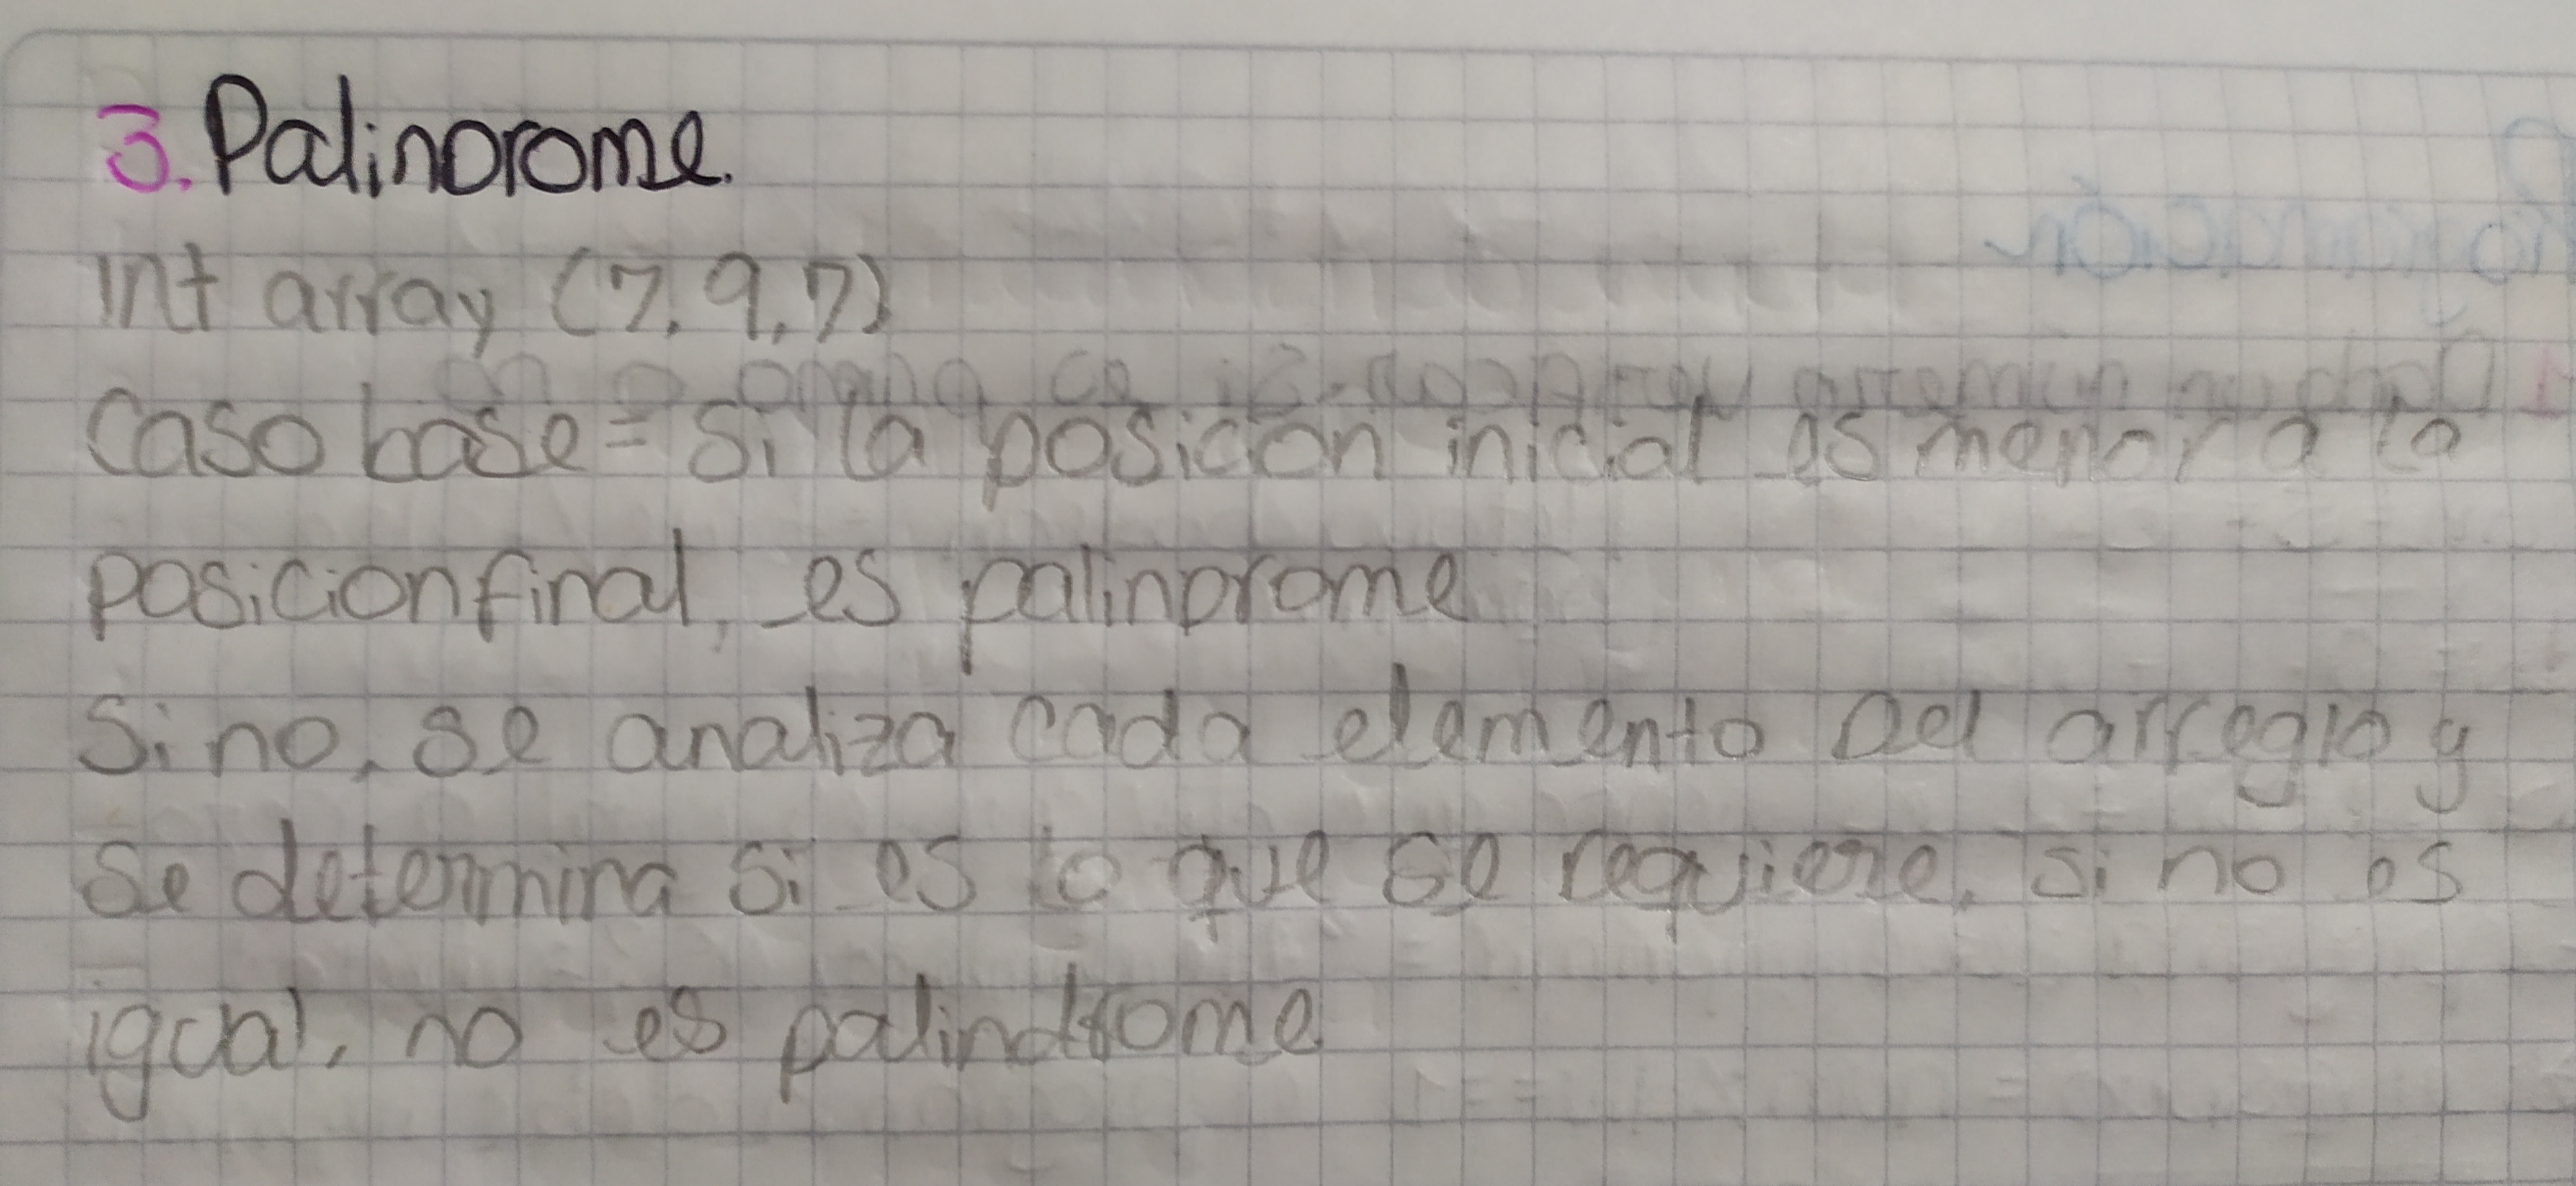 3. Palindrome.
int array (7, 9, 7)
Caso base = Si la posición inicial es menor a la
posicion final, es palindrome
Si no, se analiza cada elemento del arreglo y
se determina si es lo que se requiere, si no es
igual, no es palindrome
Programación